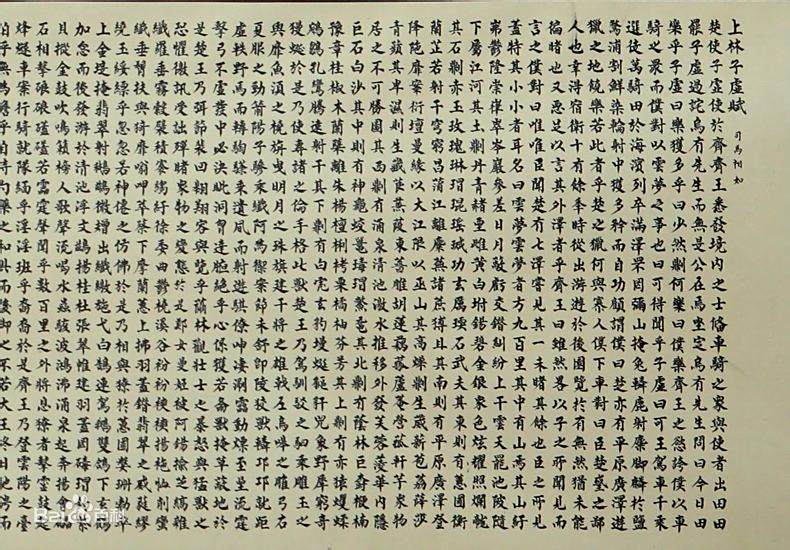 上林子虛賦 司馬相如
楚使子虛使於齊齊王悉發境內之士備車騎之眾與使者出田田
罷子虛過詫烏有先生而無是公在焉坐定烏有先生問曰今日田
樂乎子虛曰樂獲多乎曰少然則何樂曰僕樂齊王之慾誇僕以車
騎之眾而僕對以雲夢之事也曰可得聞乎子虛曰可王駕車千乘
選徒萬騎田於海濱列卒滿澤罘罔彌山掩兔轔鹿射麋腳麟於鹽
騖浦割鮮染輪射中獲多矜而自功顧謂僕曰楚亦有平原廣澤遊
獵之地饒樂若此者乎楚之獵何與寡人僕下車對曰臣楚國之鄙
人也幸得宿衛十有餘年時從出游游於後園覽於有無然猶未能
徧睹也又惡足以言其外澤者乎齊王曰雖然略以子之所聞見而
言之僕對曰唯唯臣聞楚有七澤嘗見其一未睹其餘也臣之所見
蓋特其小小者耳名曰雲夢雲夢者方九百里其中有山焉其山紆
岪鬱隆崇嵂崒岑巖參差日月蔽虧交錯糾紛上干雲天罷池陂陁
下屬江河其土則丹青赭堊雌黃白坿錫碧金銀衆色炫耀照爛龍
其石則赤玉玫瑰琳珉琨珸瑊玏玄厲瑌石武夫其東則有蕙圃衡
蘭芷若射干穹窮昌蒲江離麋蕪諸蔗猼且其南則有平原廣澤登
降陁靡案衍壇曼緣以大江限以巫山其高燥則生葴菥苞荔薛莎
青薠其卑濕則生藏莨蒹葭東薔雕胡蓮藕菰蘆菴䕡軒芋衆物
居之不可勝圖其西則有涌泉清池激水推移外發芙蓉蓤華內隱
巨石白沙其中則有神龜蛟鼉瑇瑁鱉黿其北則有陰林巨樹楩柟
豫章桂椒木蘭檗離朱楊樝梸梬栗橘柚芬芳其上則有赤猨蠷蝚
鵷鶵孔鸞騰遠射干其下則有白虎玄豹蟃蜒貙豻兕象野犀窮奇
獌狿於是乃使專諸之倫手格此獸楚王乃駕馴駁之駟乘雕玉之
輿靡魚須之橈旃曳明月之珠旗建干將之雄戟左烏嗥之雕弓右
夏服之勁箭陽子驂乘纖阿為御案節未舒即陵狡獸轔邛邛蹵距
虛軼野馬而轊騊駼乘遺風而射遊騏倏眒淒浰雷動熛至星流霆
擊弓不虛發中必決眦洞胸達腋絕乎心繫獲若雨獸掩草蔽地於
是楚王乃弭節裴回翱翔容與覽乎陰林觀壯士之暴怒與猛獸之
恐懼徼郤受詘殫睹衆物之變態於是鄭女曼姬被阿緆揄紵縞雜
纖羅垂霧縠襞積褰縐紆徐委曲鬱橈谿谷衯衯裶裶揚袘恤削蜚
纖垂髾扶與猗靡噏呷萃蔡下摩蘭蕙上拂羽蓋錯翡翠之威蕤繆
繞玉綏縹乎忽忽若神仙之仿佛於是乃相與獠於蕙圃媻珊勃窣
上金堤掩翡翠射鵔鸃微矰出纖繳施弋白鵠連駕鵝雙鶬下玄鶴
加怠而後發游於清池浮文鷁揚桂枻張翠帷建羽蓋罔瑇瑁釣紫
貝摐金鼓吹鳴籟榜人歌聲流喝水蟲駭波鴻沸涌泉起奔揚會礧
石相擊硠硠磕磕若雷霆之聲聞乎數百里之外將息獠者擊靈鼓起
烽燧車案行騎就隊纚乎淫淫班乎裔裔於是楚王乃登陽雲之臺
怕乎無為憺乎自持勺藥之和具而後御之不若大王終日馳騁而
Baidu百科